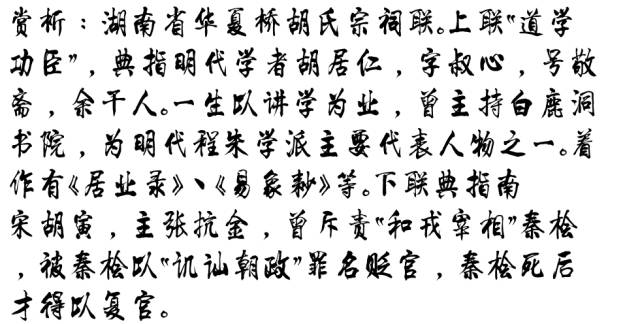 赏析：湖南省华夏桥胡氏宗祠联。上联“道学
功臣”，典指明代学者胡居仁，字叔心，号敬
斋，余干人。一生以讲学为业，曾主持白鹿洞
书院，为明代程朱学派主要代表人物之一。着
作有《居业录》、《易象麨》等。下联典指南
宋胡寅，主张抗金，曾斥责“和戎宰相”秦桧
，被秦桧以“讥讪朝政”罪名贬官，秦桧死后
才得以复官。